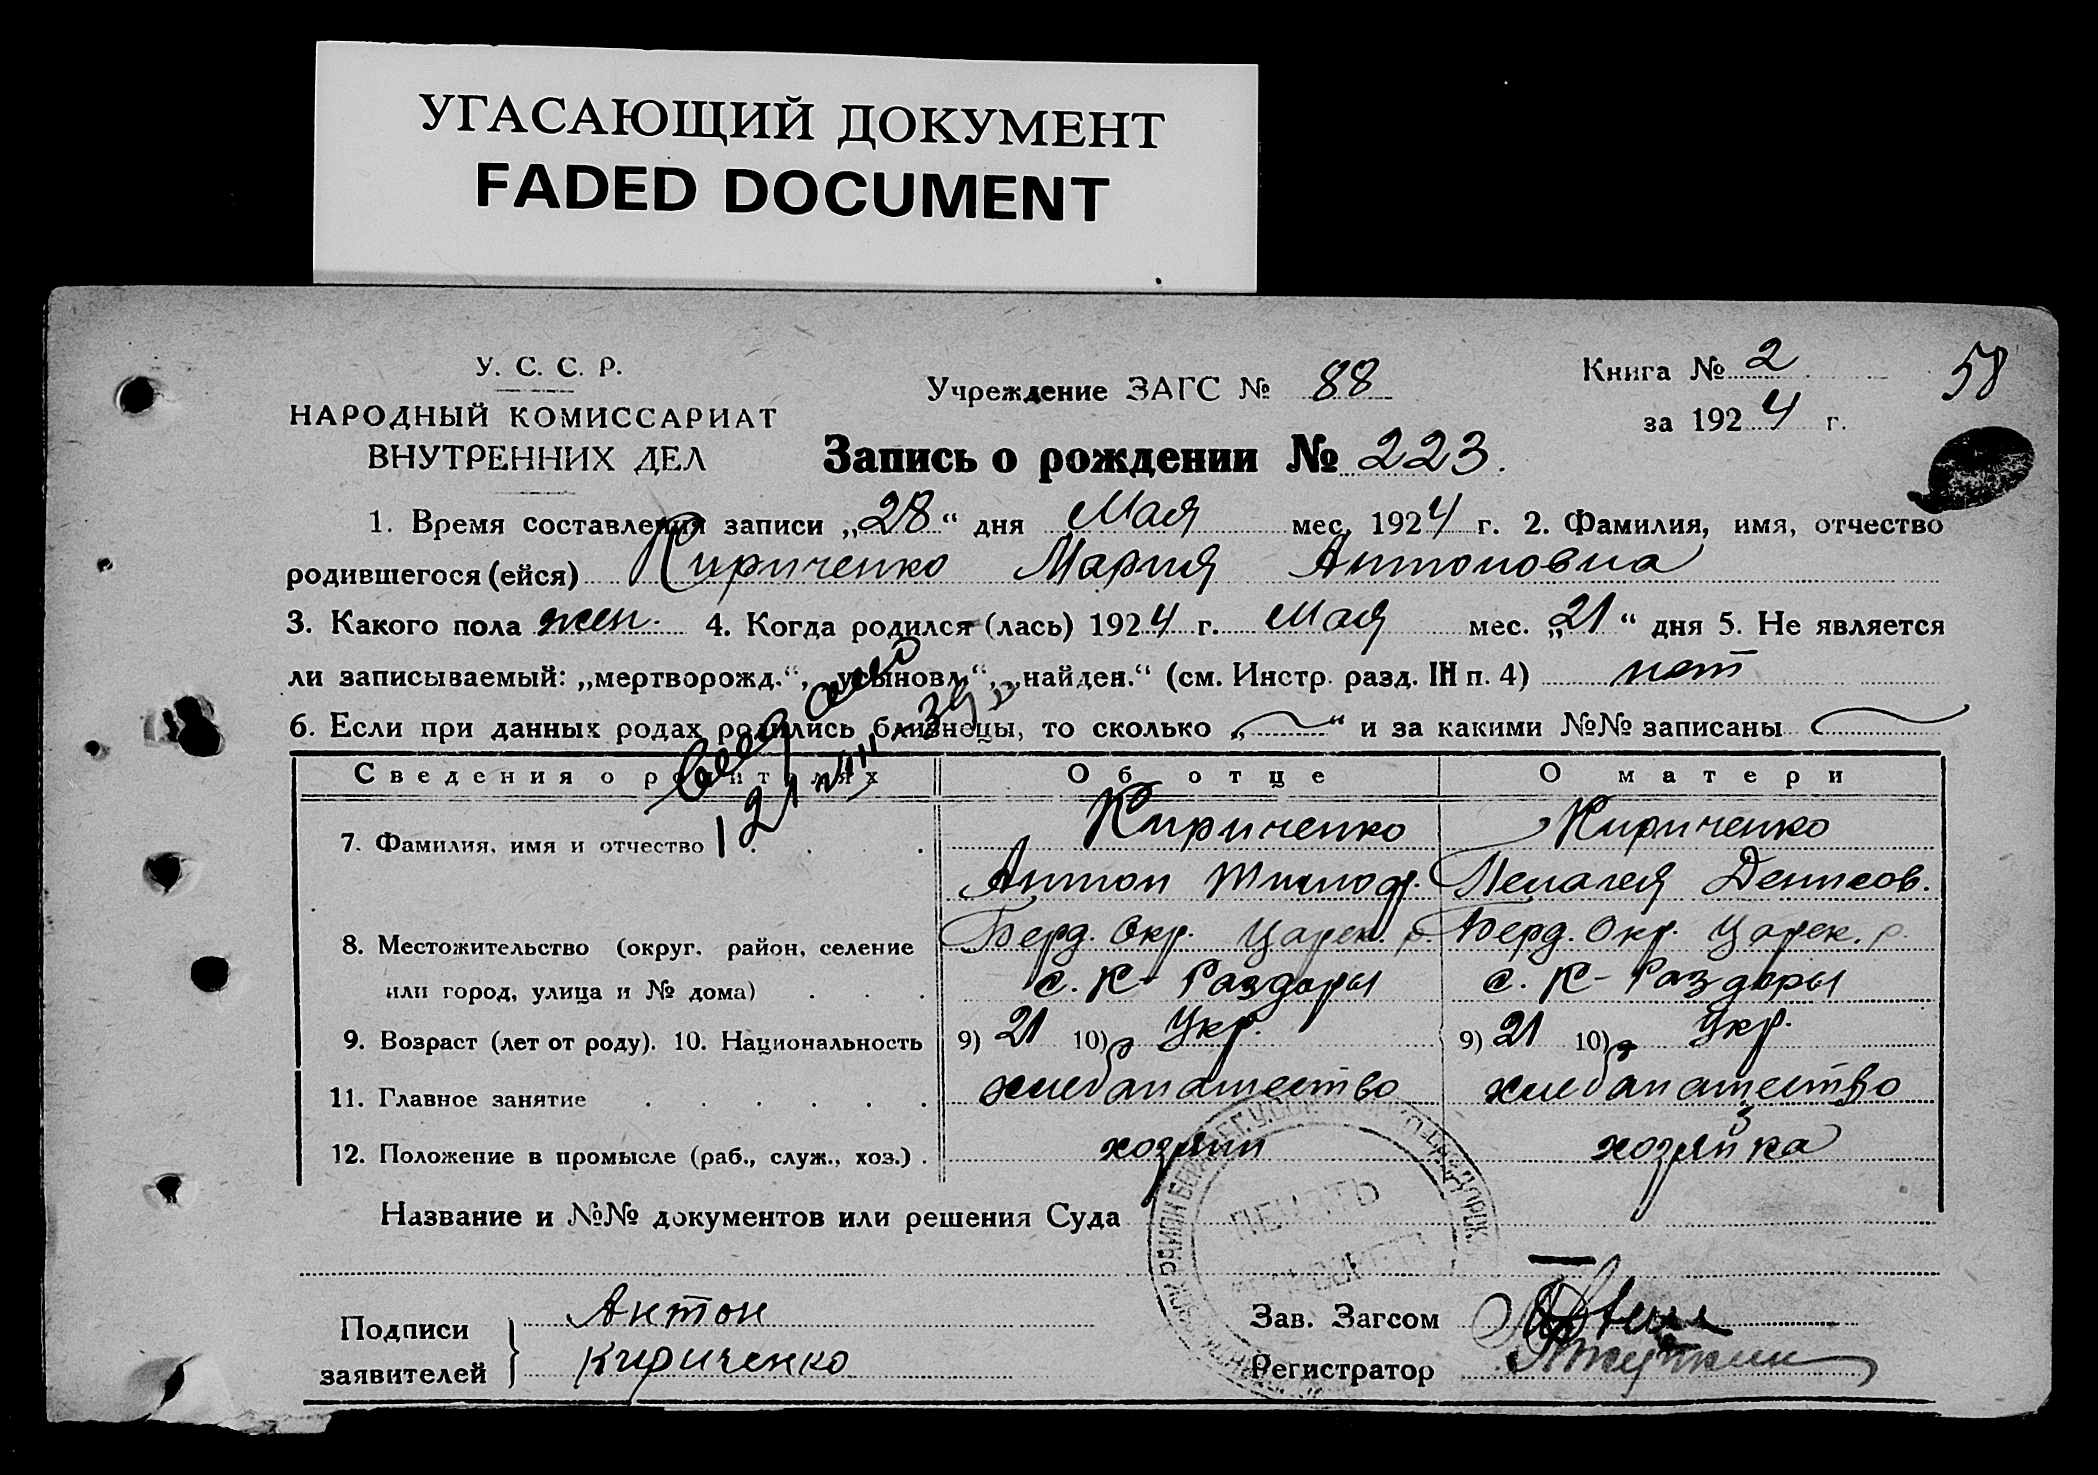 УГАСАЮЩИЙ ДОКУМЕНТ
FADED DOCUMENT
У. С. С. Р.
НАРОДНЫЙ КОМИССАРИАТ
ВНУТРЕННИХ ДЕЛ
Учреждение ЗАГС № 88
Книга № 2
за 1924 г.
58
Запись о рождении № 223.
1. Время составления записи „28“ дня Мая мес. 1924 г. 2. Фамилия, имя, отчество
родившегося (ейся) Кириченко Мария Антоновна
3. Какого пола жен. 4. Когда родился (лась) 1924 г. Мая мес. „21“ дня 5. Не является
ли записываемый: „мертворожд.“, „усыновл.“, „найден.“ (см. Инстр. разд. III п. 4) нет
6. Если при данных родах родились близнецы, то сколько „ “ и за какими №№ записаны
Сведения о родителях Об отце О матери
7. Фамилия, имя и отчество Кириченко Кириченко
Антон Тимоф. Пелагея Денисов.
8. Местожительство (округ, район, селение Берд. Окр. Царек. р. Берд. Окр. Царек. р.
или город, улица и № дома) с. К-Раздоры с. К-Раздоры
9. Возраст (лет от роду). 10. Национальность 9) 21 10) Укр. 9) 21 10) Укр.
11. Главное занятие хлебопашество хлебопашество
12. Положение в промысле (раб., служ., хоз.) хозяин хозяйка
Название и №№ документов или решения Суда
ПЕЧАТЬ
Подписи
заявителей
Антон
Кириченко
Зав. Загсом
Регистратор